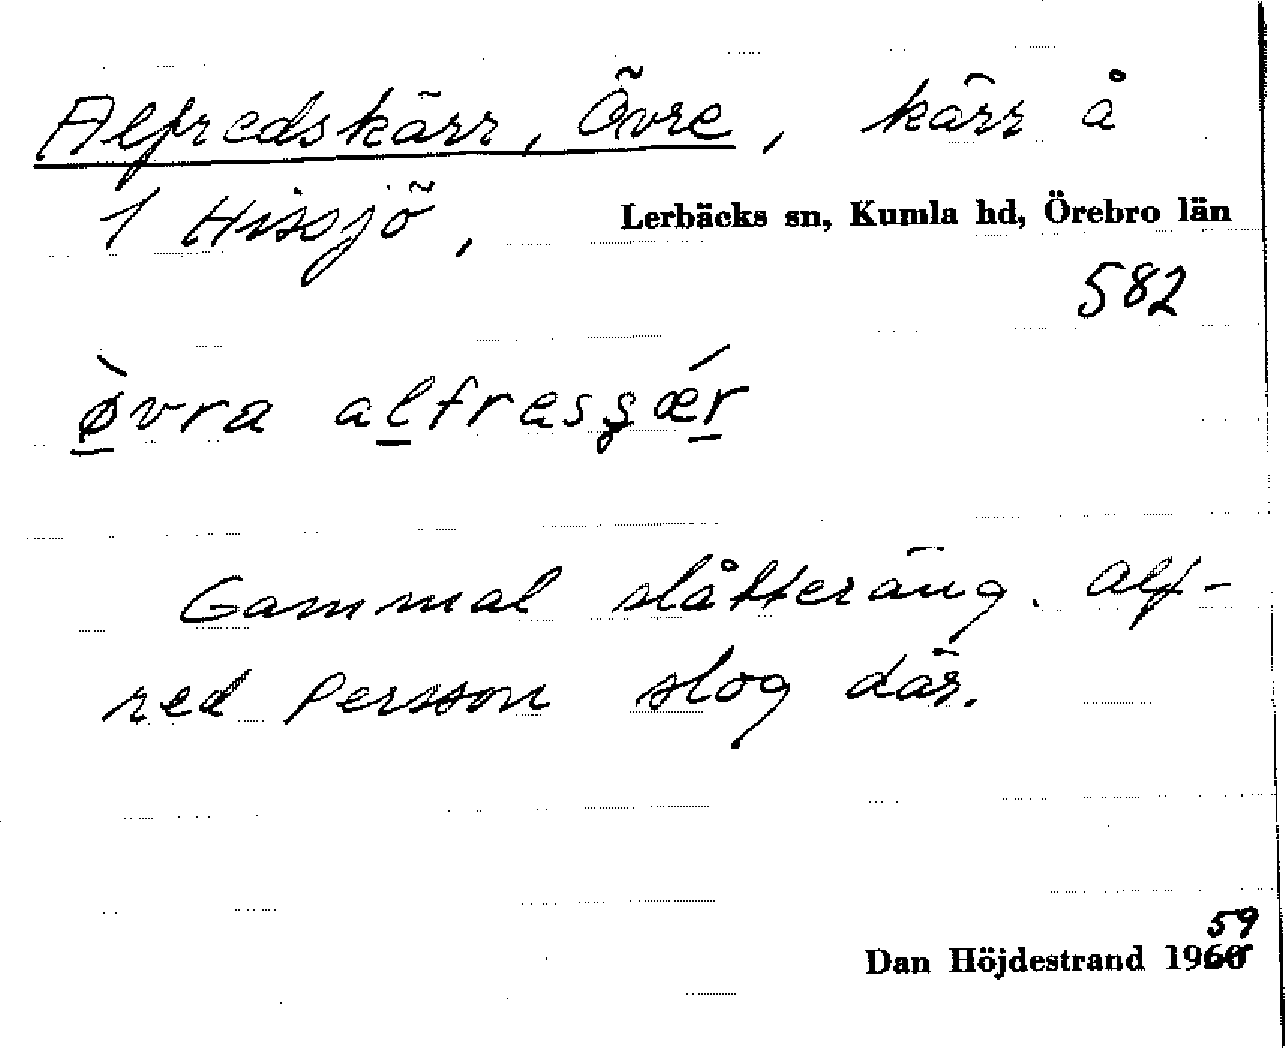 Alfredskärr, Övre, kärr å
1 Hissjö, Lerbäcks sn, Kumla hd, Örebro län
582
ø̀vra alfresʂǽr
Gammal slåtteräng. Alf-
red Persson slog där.
59
Dan Höjdestrand 1960